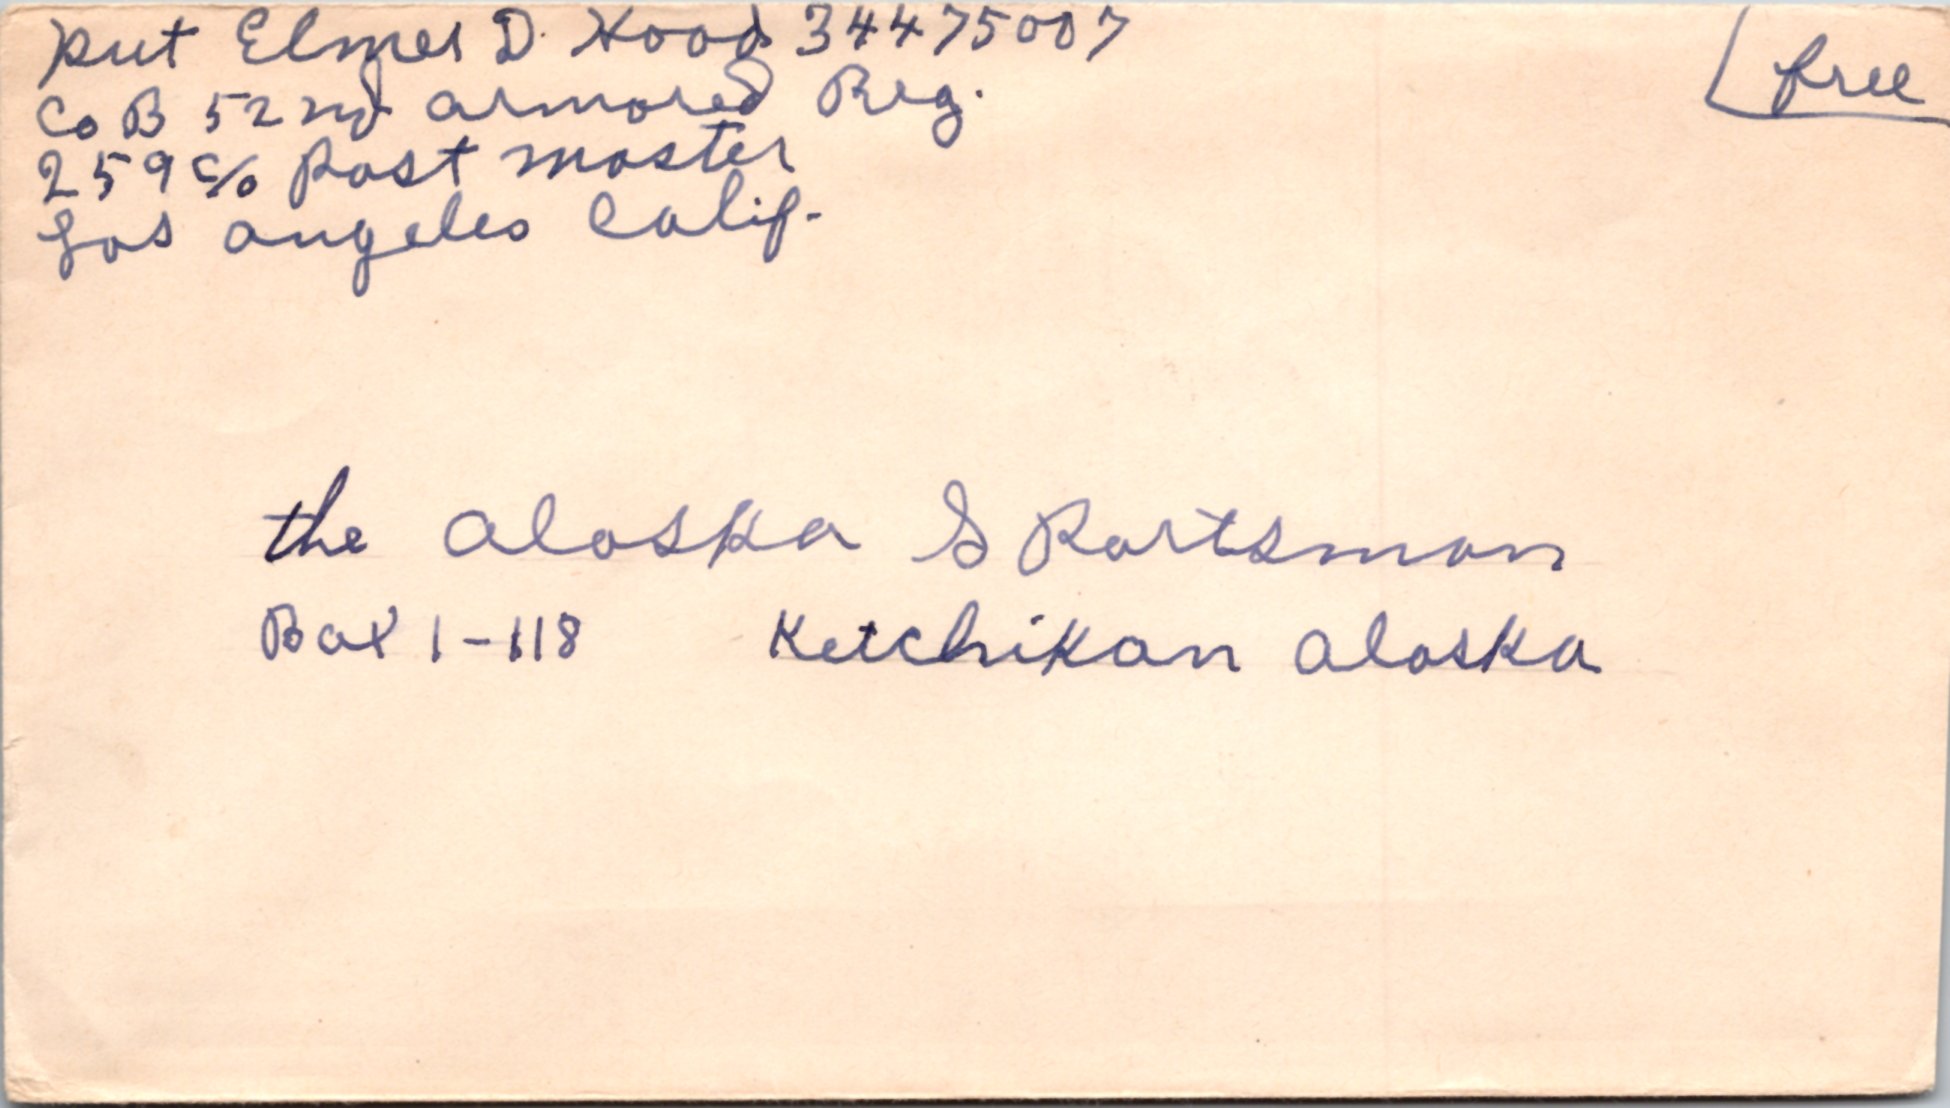 Pvt Elmer D. Hood 34475007
Co B 52nd armored Reg.
259 c/o Post master
Los angeles Calif.
free
the alaska Sportsman
Box 1-118 Ketchikan alaska